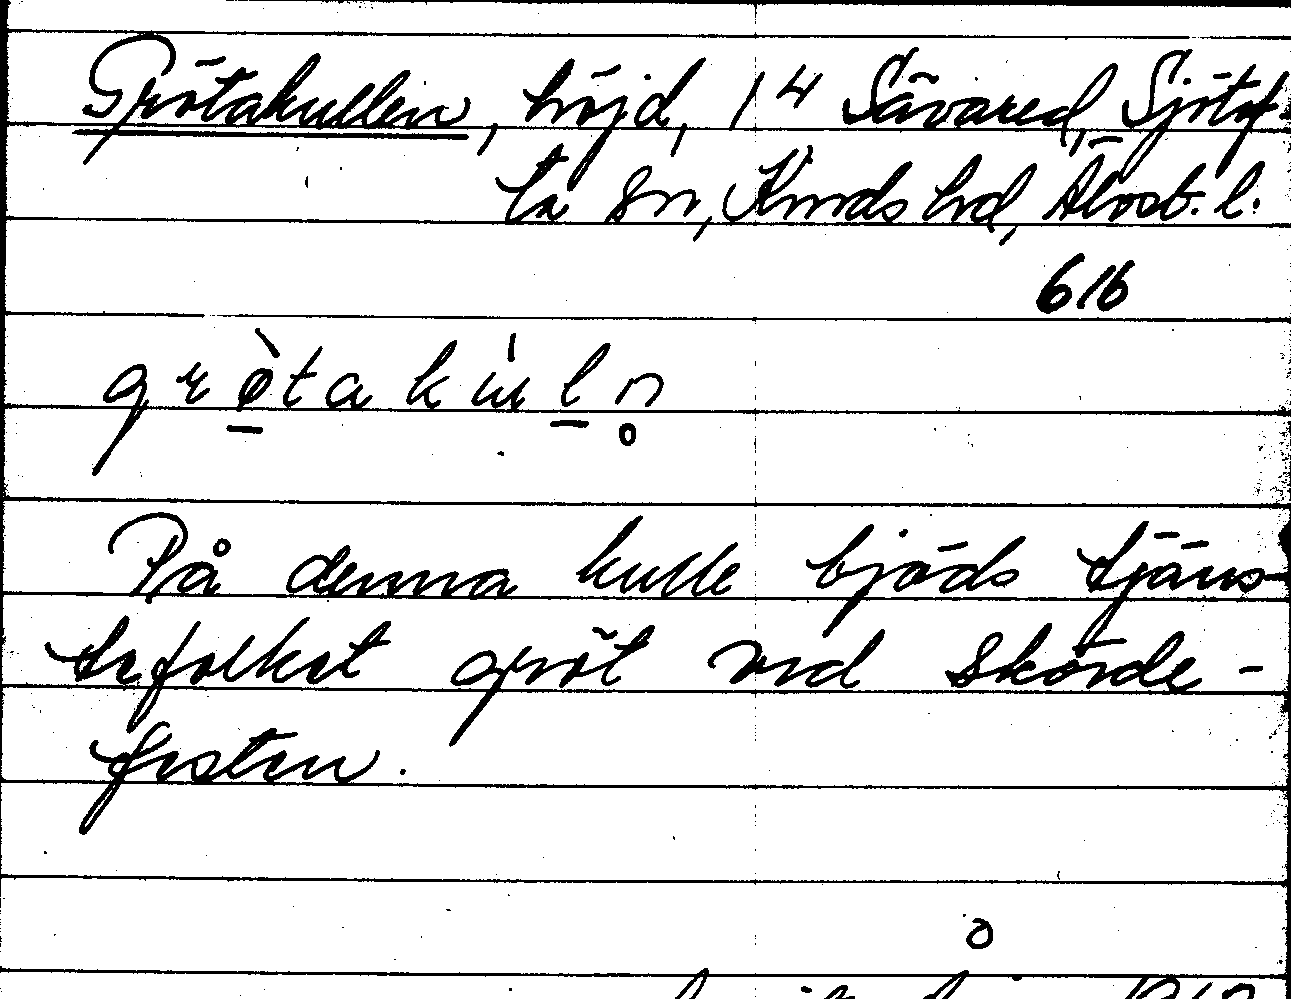 Grötakullen, höjd, 14 Sävared, Sjötof-
ta sn, Kinds hd, Älvsb. l.
616
grø̀takùl̥n
På denna kulle bjöds tjäns-
tefolket gröt vid skörde-
festen.